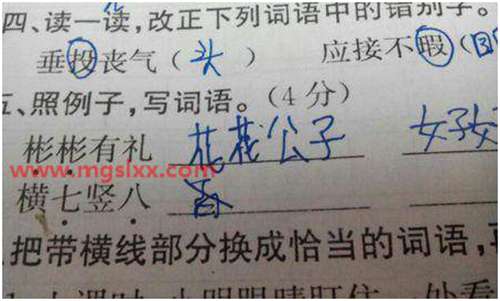 四、读一读,改正下列词语中的错别字。
垂投丧气(头) 应接不暇(
五、照例子,写词语。(4分)
彬彬有礼 花花公子 女子女
www.mgslxx.com
横七竖八
把带横线部分换成恰当的词语,